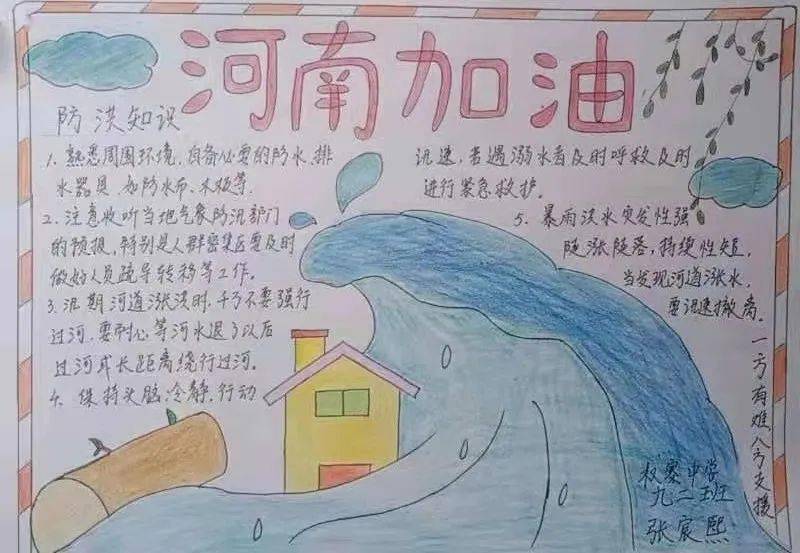 河南加油
防洪知识
1. 熟悉周围环境,自备必要的防水、排
水器具,如防水布、木板等.
2. 注意收听当地气象防汛部门
的预报,特别是人群密集区要及时
做好人员疏导转移等工作。
3. 汛期河道涨洪时,千万不要强行
过河,要耐心等河水退了以后
过河或长距离绕行过河。
4. 保持头脑冷静,行动
迅速,当遇溺水者及时呼救及时
进行紧急救护。
5. 暴雨洪水突发性强
陡涨陡落,持续性短,
当发现河道涨水,
要迅速撤离。
一方有难八方支援
权寨中学
九二班
张宸熙